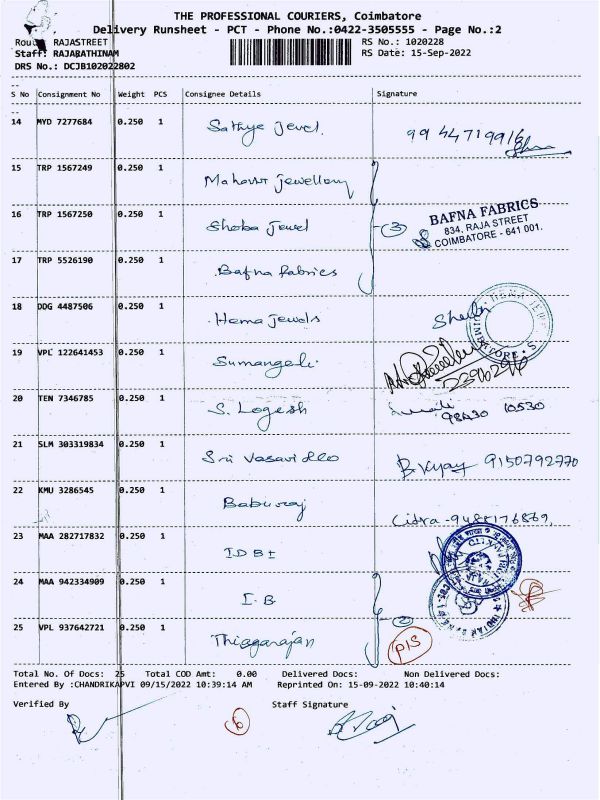 THE PROFESSIONAL COURIERS, Coimbatore
Delivery Runsheet - PCT - Phone No.:0422-3505555 - Page No.:2
RAJASTREET RS No.: 1020228
Staff: RAJABATHINAM RS Date: 15-Sep-2022
DRS No.: DCJB102022802
S No Consignment No Weight PCS Consignee Details Signature
14 MYD 7277684 0.250 1 Sathye Jewel.
15 TRP 1567249 0.250 1 Mahavir Jewellary
16 TRP 1567250 0.250 1 Shoba Jewel 3 BAFNA FABRICS
834, RAJA STREET
COIMBATORE - 641 001.
17 TRP 5526190 0.250 1 Bafna fabrics
18 DDG 4487506 0.250 1 Hema Jewels
19 VPL 122641453 0.250 1 Sumangali
20 TEN 7346785 0.250 1 S. Logesh 98430 10530
21 SLM 303319834 0.250 1 Sri Vasavi B. Vijay 9150792770
22 KMU 3286545 0.250 1 Baburaj
23 MAA 282717832 0.250 1 IDBI
24 MAA 942334909 0.250 1 I.B
25 VPL 937642721 0.250 1 Thiagarajan 2
Total No. Of Docs: 25 Total COD Amt: 0.00 Delivered Docs: Non Delivered Docs:
Entered By :CHANDRIKAPVI 09/15/2022 10:39:14 AM Reprinted On: 15-09-2022 10:40:14
Verified By Staff Signature